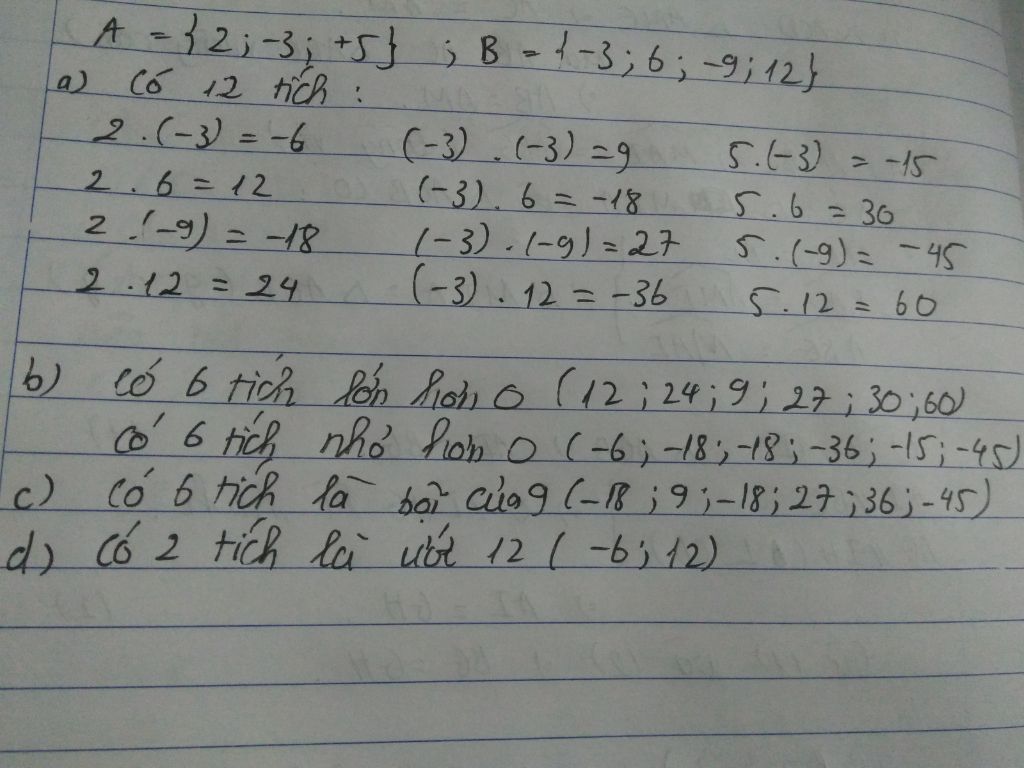 A = {2 ; -3 ; +5} ; B = {-3 ; 6 ; -9 ; 12}
a) Có 12 tích :
2 . (-3) = -6 (-3) . (-3) = 9 5 . (-3) = -15
2 . 6 = 12 (-3) . 6 = -18 5 . 6 = 30
2 . (-9) = -18 (-3) . (-9) = 27 5 . (-9) = -45
2 . 12 = 24 (-3) . 12 = -36 5 . 12 = 60
b) Có 6 tích lớn hơn 0 (12 ; 24 ; 9 ; 27 ; 30 ; 60)
Có 6 tích nhỏ hơn 0 (-6 ; -18 ; -18 ; -36 ; -15 ; -45)
c) Có 6 tích là bội của 9 (-18 ; 9 ; -18 ; 27 ; 36 ; -45)
d) Có 2 tích là ước 12 ( -6 ; 12)